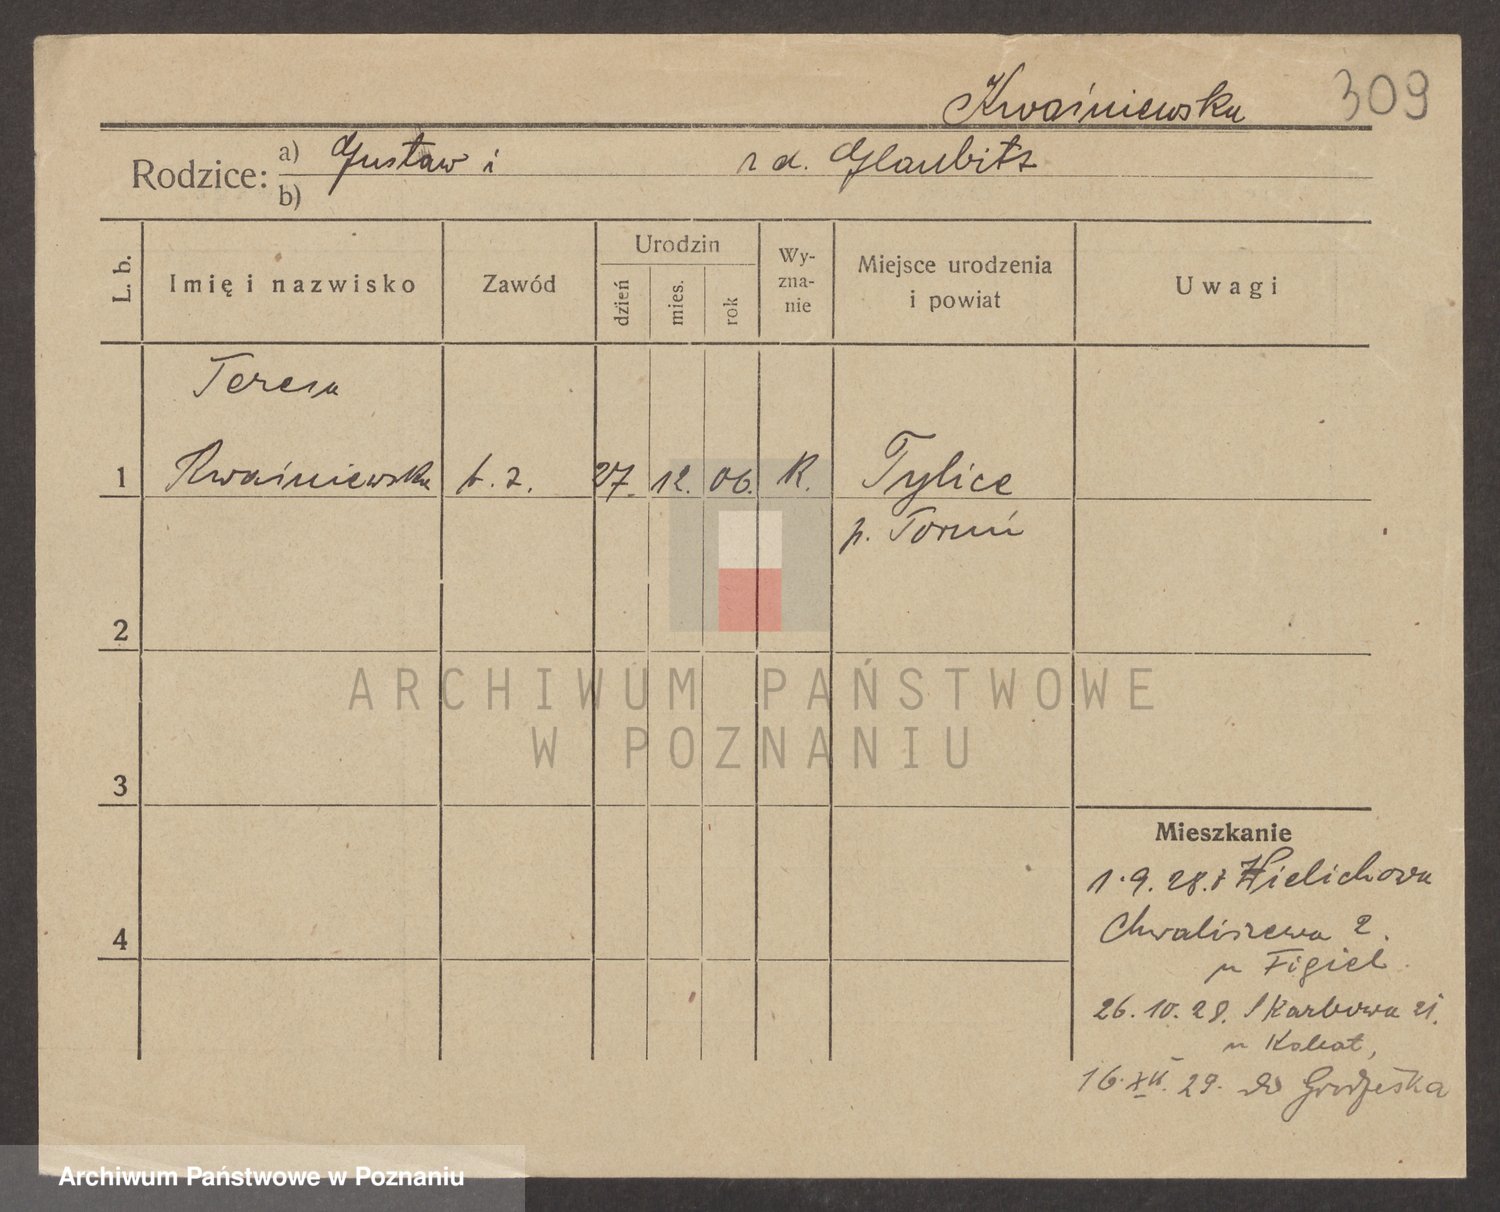 Kwaśniewska 309
Rodzice: a) Gustaw i
b) z d. Glaubitz
L. b. Imię i nazwisko Zawód Urodzin dzień mies. rok Wy-zna-nie Miejsce urodzenia i powiat Uwagi
Teresa
1 Kwaśniewska b. z. 27. 12. 06. K. Tylice
p. Toruń
2
3
4
Mieszkanie
1.9.28. z Wielichowa
Chwaliszewo 2.
u Figiel
26.10.28. Skarbowa 21.
u Kabat,
16.XII.29. do Grodziska
ARCHIWUM PAŃSTWOWE
W POZNANIU
Archiwum Państwowe w Poznaniu